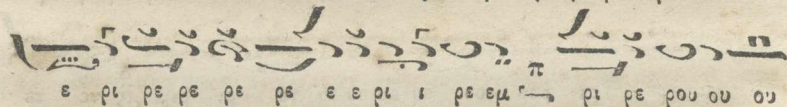 ε ρι ρε ρε ρε ρε ε ε ρι ι ρε εμ π ρι ρε ρου ου ου